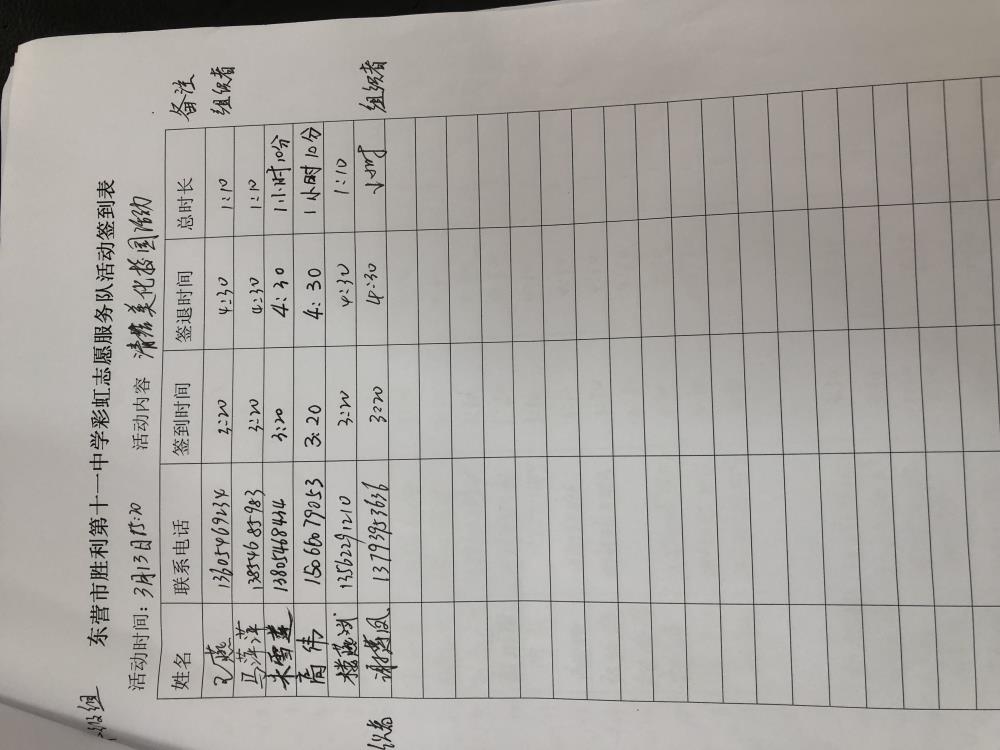 级组
东营市胜利第十一中学彩虹志愿服务队活动签到表
活动时间：3月13日15:20 活动内容 清扫美化校园活动
姓名 联系电话 签到时间 签退时间 总时长 备注
王燕 13605469234 3:20 4:30 1:10 组织者
马萍萍 13854685983 3:20 4:30 1:10
米雪莲 13805468414 3:20 4:30 1小时10分
高伟 15066079053 3:20 4:30 1小时10分
楼燕斌 13562291210 3:20 4:30 1:10
13793953636 3:20 4:30 小时 组织者